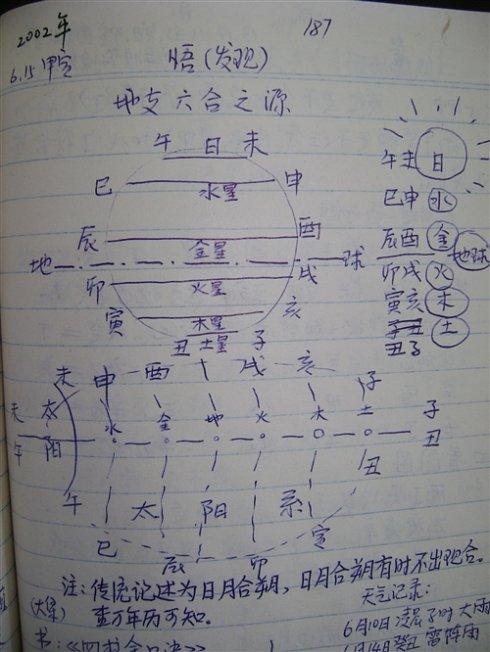 2002年
187
6.15 甲寅
悟(发现)
地支六合之源
午 日 未
巳 水星 申
辰 金星 酉
地 球
卯 火星 戌
寅 木星 亥
丑 土星 子
午未 日
巳申 水
辰酉 金
地球
卯戌 火
寅亥 木
子丑
丑子 土
未 申 酉 戌 亥 子
未 太 水 金 地 火 木 土 子
午 阳 丑
午 太 阳 系 丑
巳 辰 卯 寅
注:传统记述为日月合朔,日月合朔有时不出现合。
查万年历可知。
天气记录:
6月10日凌晨子时大雨
书:《四书金口诀》
6月14癸丑 雷阵雨